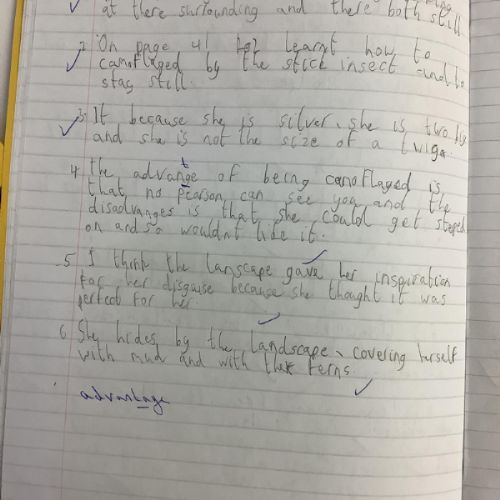 at there surrounding and there both still
2 On page 41 learnt how to
camoflaged by the stick insect and to
stay still.
3. It because she is silver, she is two big
and she is not the size of a twig.
4. the advange of being camoflaged is
t
that no pearson can see you and the
disadvanges is that she could get steped
on and so wouldnt like it.
5 I think the lanscape gave her inspiration
for her disguise because she thought it was
perfect for her
6. She hides by the landscape, covering herself
with mud and with ferns.
advantage